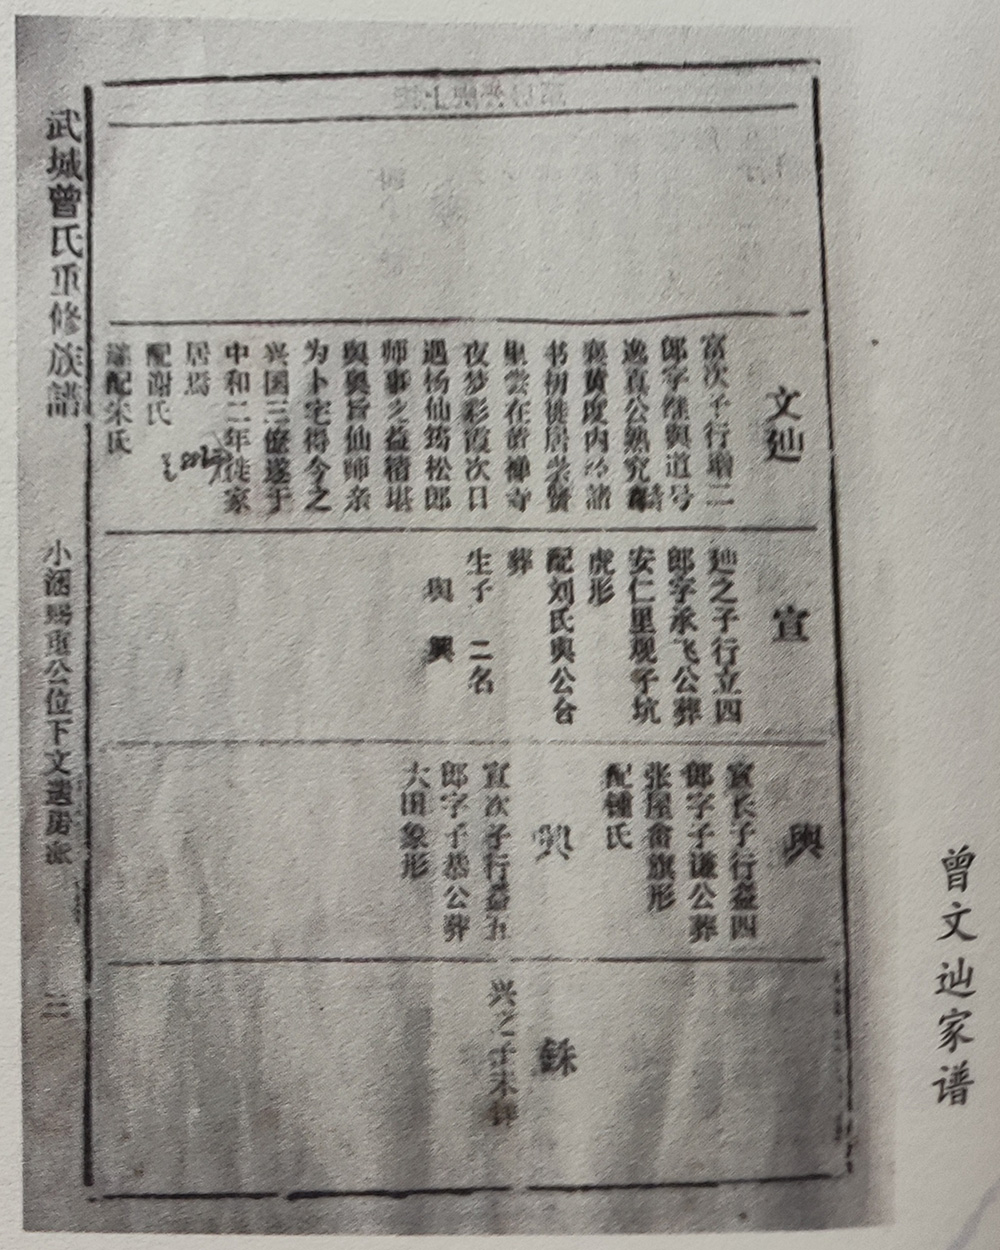 文辿
富次子行瑞二
郎字继舆道号
逸真公熟究
襄黄度内诸
书初徙居崇贤
里尝在黄禅寺
夜梦彩霞次日
遇杨仙筠松郎
师事之益精堪
舆奥旨仙师亲
为卜宅得今之
兴国三僚遂于
中和二年徙家
居焉
配谢氏
继配朱氏
宣
辿之子行立四
郎字承飞公葬
安仁里观子坑
虎形
配刘氏舆公合
葬
生子 二名
舆 興
舆
宣长子行益四
郎字子谦公葬
张屋畲旗形
配鍾氏
興
宣次子行益五
郎字子恭公葬
大田象形
銖
兴之子未详
武城曾氏重修族譜
公位下文遄房派
三
曾文辿家谱